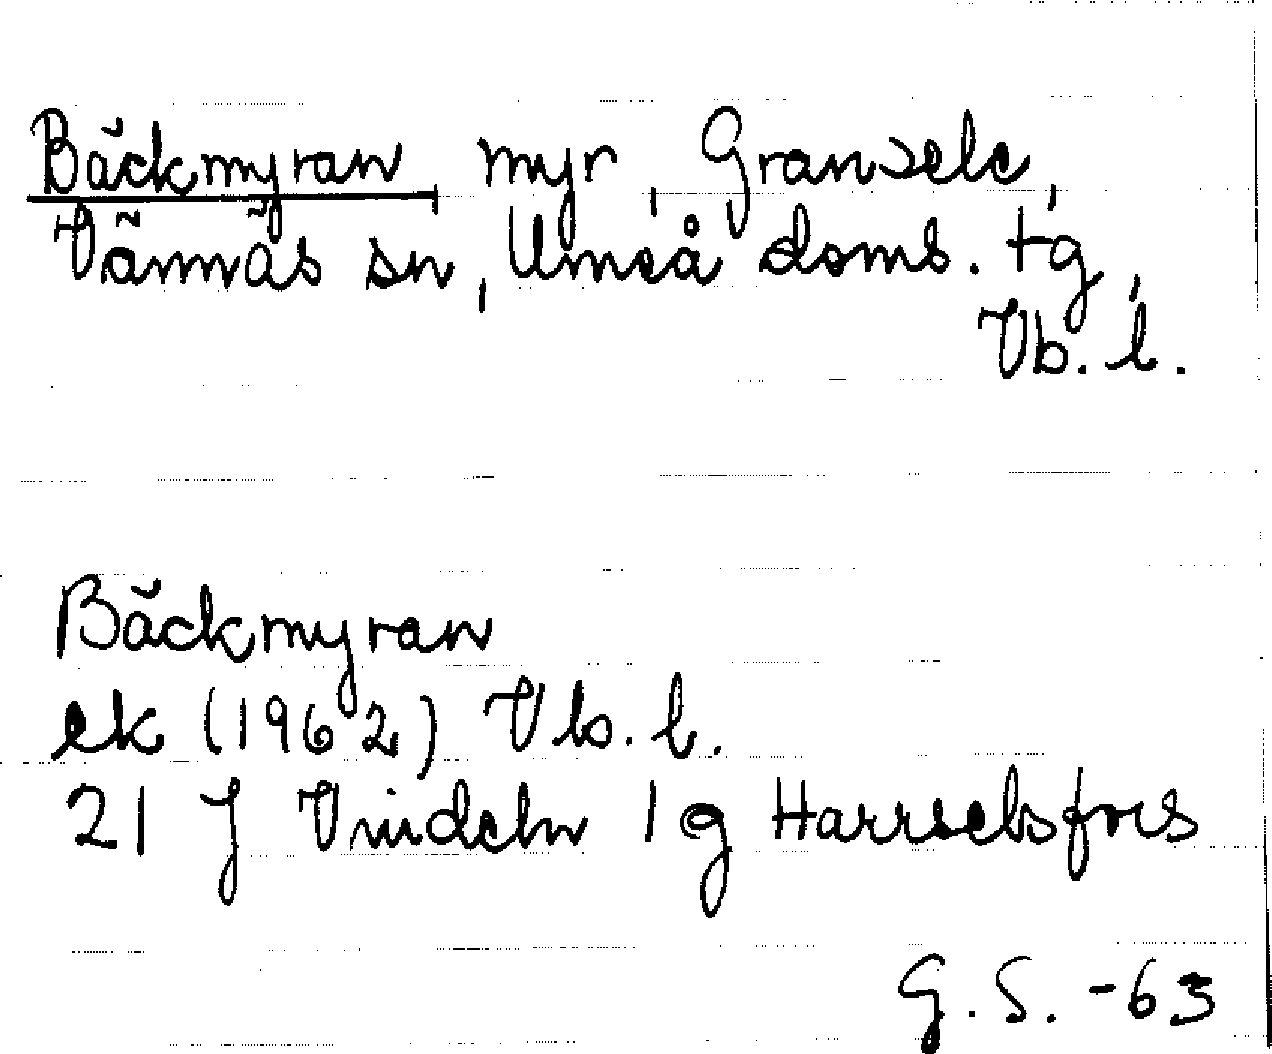 Bäckmyran, myr, Granselе,
Vännäs sn, Umeå doms. tg,
Vb. l.
Bäckmyran
ek (1962) Vb. l.
21 J Vindeln 1 g Harrselsfors
G. S. -63